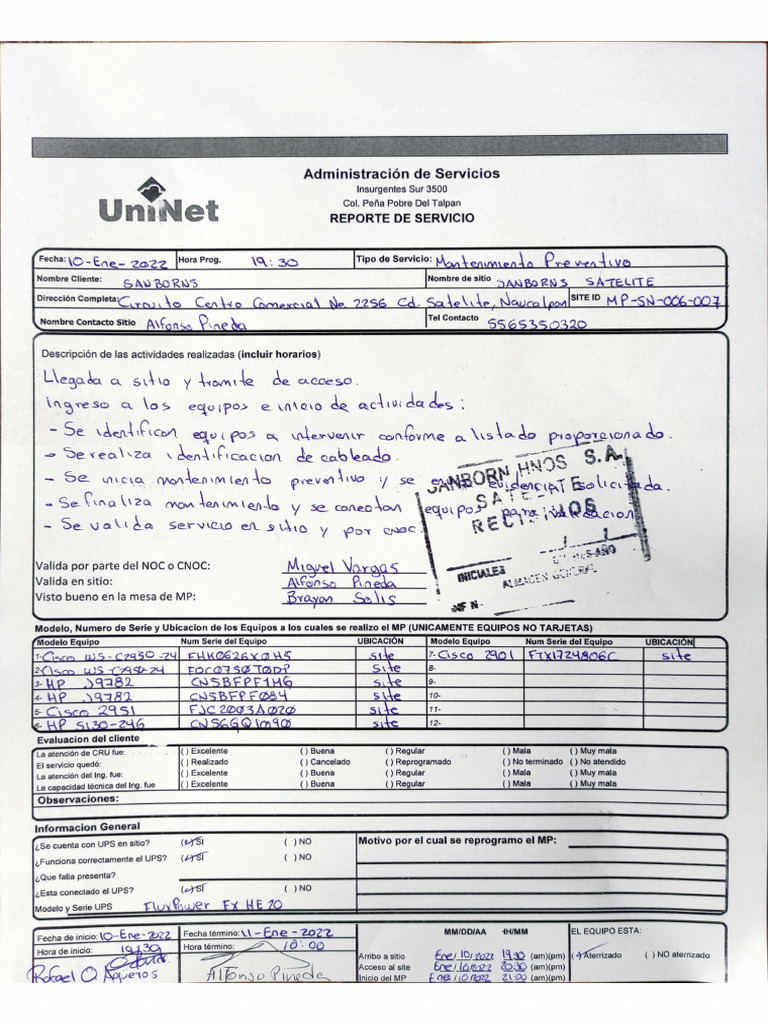 UniNet
Administración de Servicios
Insurgentes Sur 3500
Col. Peña Pobre Del Talpan
REPORTE DE SERVICIO
Fecha: 10-Ene-2022 Hora Prog. 19:30 Tipo de Servicio: Mantenimiento Preventivo
Nombre Cliente: SANBORNS Nombre de sitio SANBORNS SATELITE
Dirección Completa: Circuito Centro Comercial No. 2256 Cd. Satelite, Naucalpan SITE ID MP-SN-006-007
Nombre Contacto Sitio Alfonso Pineda Tel Contacto 5565350320
Descripción de las actividades realizadas (incluir horarios)
Llegada a sitio y tramite de acceso.
Ingreso a los equipos e inicio de actividades:
- Se identifican equipos a intervenir conforme a listado proporcionado.
- Se realiza identificacion de cableado.
- Se inicia mantenimiento preventivo y se evidencia solicitada.
- Se finaliza mantenimiento y se conectan equipos para validacion
- Se valida servicio en sitio y por CNOC.
SANBORN HNOS S.A.
SATELITE
RECIBIMOS
INICIALES
ALMACEN GENERAL
NF N
Valida por parte del NOC o CNOC: Miguel Vargas
Valida en sitio: Alfonso Pineda
Visto bueno en la mesa de MP: Brayan Solis
Modelo, Numero de Serie y Ubicacion de los Equipos a los cuales se realizo el MP (UNICAMENTE EQUIPOS NO TARJETAS)
Modelo Equipo Num Serie del Equipo UBICACIÓN Modelo Equipo Num Serie del Equipo UBICACIÓN
1- Cisco WS-C2950-24 FHK0626X0H5 site 7- Cisco 2901 FTX1724806C site
2- Cisco WS-C2950-24 FOC0750T0DP site 8-
3- HP J9782 CN5BFPF1MG site 9-
4- HP J9782 CN5BFPF084 site 10-
5- Cisco 2951 FJC2003A020 site 11-
6- HP 5130-24G CN56GQ1M90 site 12-
Evaluacion del cliente
La atención de CRU fue: ( ) Excelente ( ) Buena ( ) Regular ( ) Mala ( ) Muy mala
El servicio quedó: ( ) Realizado ( ) Cancelado ( ) Reprogramado ( ) No terminado ( ) No atendido
La atención del Ing. fue: ( ) Excelente ( ) Buena ( ) Regular ( ) Mala ( ) Muy mala
La capacidad técnica del Ing. fue ( ) Excelente ( ) Buena ( ) Regular ( ) Mala ( ) Muy mala
Observaciones:
Informacion General
¿Se cuenta con UPS en sitio? (✓) SI ( ) NO Motivo por el cual se reprogramo el MP:
¿Funciona correctamente el UPS? (✓) SI ( ) NO
¿Que falla presenta?
¿Esta conectado el UPS? (✓) SI ( ) NO
Modelo y Serie UPS FluxPower FX HE 20
Fecha de inicio: 10-Ene-2022 Fecha término: 11-Ene-2022 MM/DD/AA HH/MM EL EQUIPO ESTA:
Hora de inicio: 19:30 Hora término: 18:00
Arribo a sitio Ene/10/2022 19:30 (am)(pm) (✓) Aterrizado ( ) NO aterrizado
Acceso al site Ene/10/2022 20:30 (am)(pm)
Inicio del MP Ene/10/2022 21:00 (am)(pm)
Rafael O Agueros Alfonso Pineda